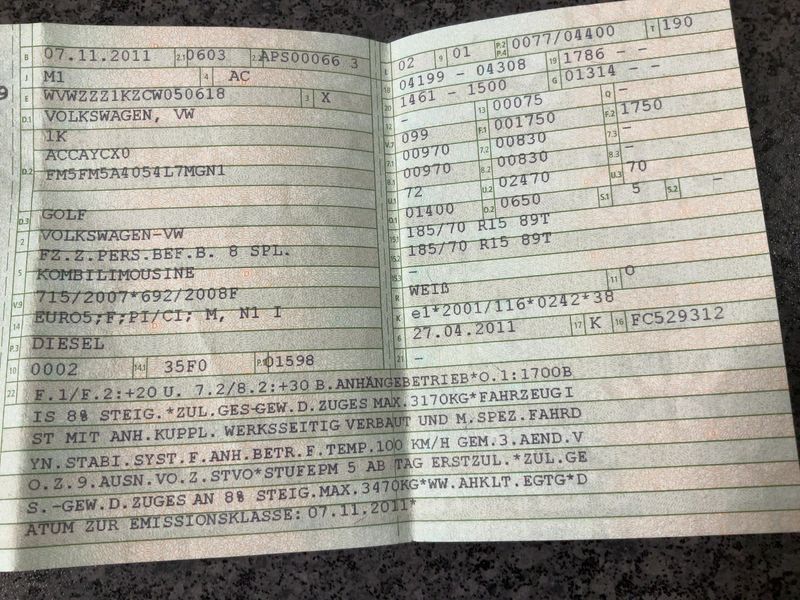 9
B 07.11.2011 2.1 0603 2.2 APS00066 3
J M1 4 AC
E WVWZZZ1KZCW050618 3 X
D.1 VOLKSWAGEN, VW
1K
D.2 ACCAYCX0
FM5FM5A4054L7MGN1
D.3 GOLF
2 VOLKSWAGEN-VW
FZ.Z.PERS.BEF.B. 8 SPL.
5 KOMBILIMOUSINE
V.9 715/2007*692/2008F
14 EURO5;F;PI/CI; M, N1 I
P.3 DIESEL
10 0002 14.1 35F0 P.1 01598
L 02 9 01 P.2 P.4 0077/04400 T 190
18 04199 - 04308 19 1786 - -
20 1461 - 1500 G 01314 - -
- 13 00075 Q -
V.7 099 F.1 001750 F.2 1750
7.1 00970 7.2 00830 7.3 -
8.1 00970 8.2 00830 8.3 -
U.1 72 U.2 02470 U.3 70
O.1 01400 O.2 0650 S.1 5 S.2 -
15.1 185/70 R15 89T
15.2 185/70 R15 89T
15.3 -
R WEIß 11 0
K e1*2001/116*0242*38
6 27.04.2011 17 K 16 FC529312
21 -
22 F.1/F.2:+20 U. 7.2/8.2:+30 B.ANHÄNGEBETRIEB*O.1:1700B
IS 8% STEIG.*ZUL.GES-GEW.D.ZUGES MAX.3170KG*FAHRZEUG I
ST MIT ANH.KUPPL. WERKSSEITIG VERBAUT UND M.SPEZ.FAHRD
YN.STABI.SYST.F.ANH.BETR.F.TEMP.100 KM/H GEM.3.AEND.V
O.Z.9.AUSN.VO.Z.STVO*STUFEPM 5 AB TAG ERSTZUL.*ZUL.GE
S.-GEW.D.ZUGES AN 8% STEIG.MAX.3470KG*WW.AHKLT.EGTG*D
ATUM ZUR EMISSIONSKLASSE: 07.11.2011*